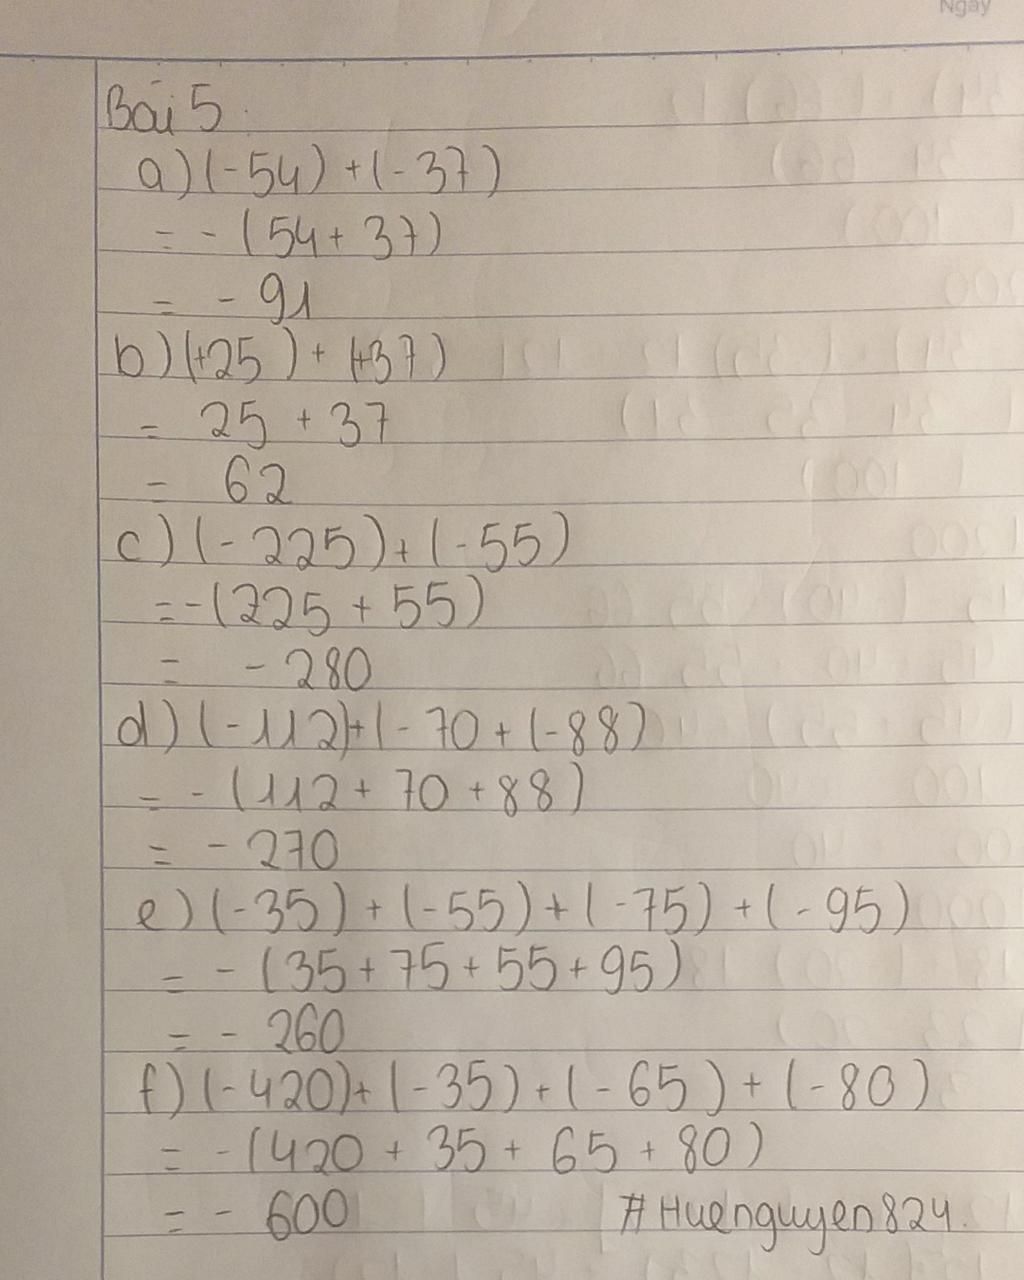 Ngày
Bài 5
a) (-54) + (-37)
= - (54 + 37)
= - 91
b) (+25) + (+37)
= 25 + 37
= 62
c) (-225) + (-55)
= -(225 + 55)
= - 280
d) (-112) + (-70 + (-88)
= - (112 + 70 + 88)
= - 270
e) (-35) + (-55) + (-75) + (-95)
= - (35 + 75 + 55 + 95)
= - 260
f) (-420) + (-35) + (-65) + (-80)
= -(420 + 35 + 65 + 80)
= - 600 #Huenguyen824.